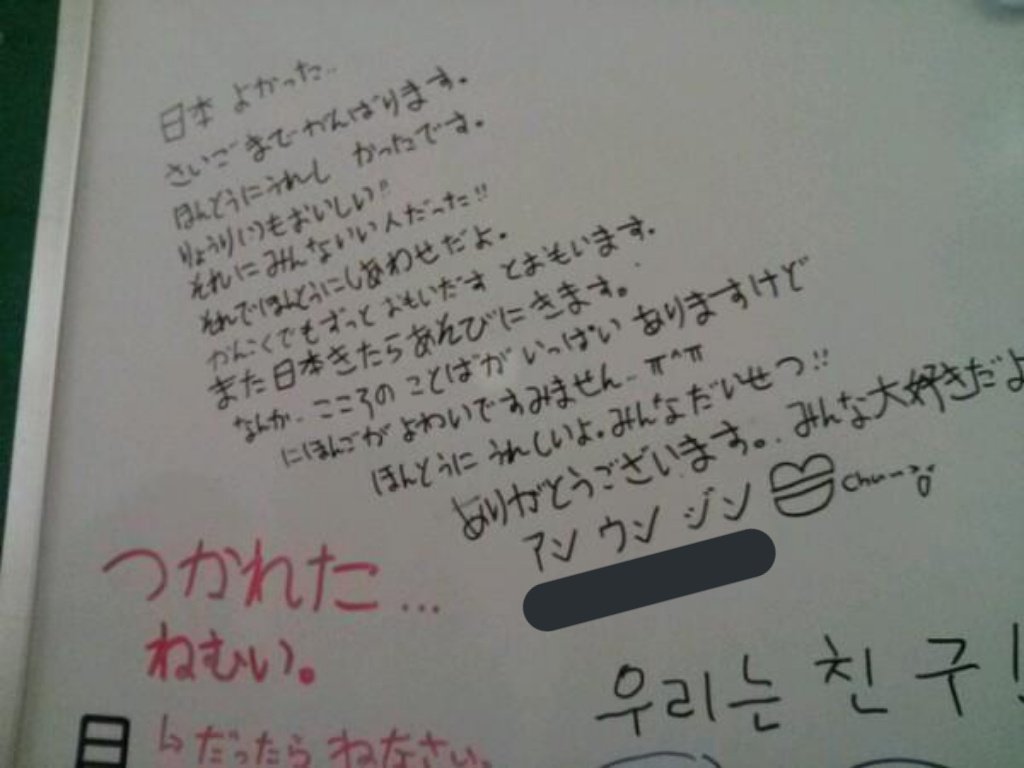 日本 よかった..
さいごまでがんばります。
ほんとうにうれし かったです。
りょうりいつもおいしい!!
それにみんないい人だった!!
それでほんとうにしあわせだよ。
かんこくでもずっと おもいだす とおもいます。
また日本きたらあそびにきます。
なんか.. こころの ことばが いっぱい ありますけど
にほんごが よわいですみません.. π^π
ほんとうに うれしいよ。みんなだいせつ!!
ありがとうございます。. みんな大好きだよ
アン ウン ジン chu~
つかれた...
ねむい。
日 ↳だったら ねなさい。
우리는 친구!